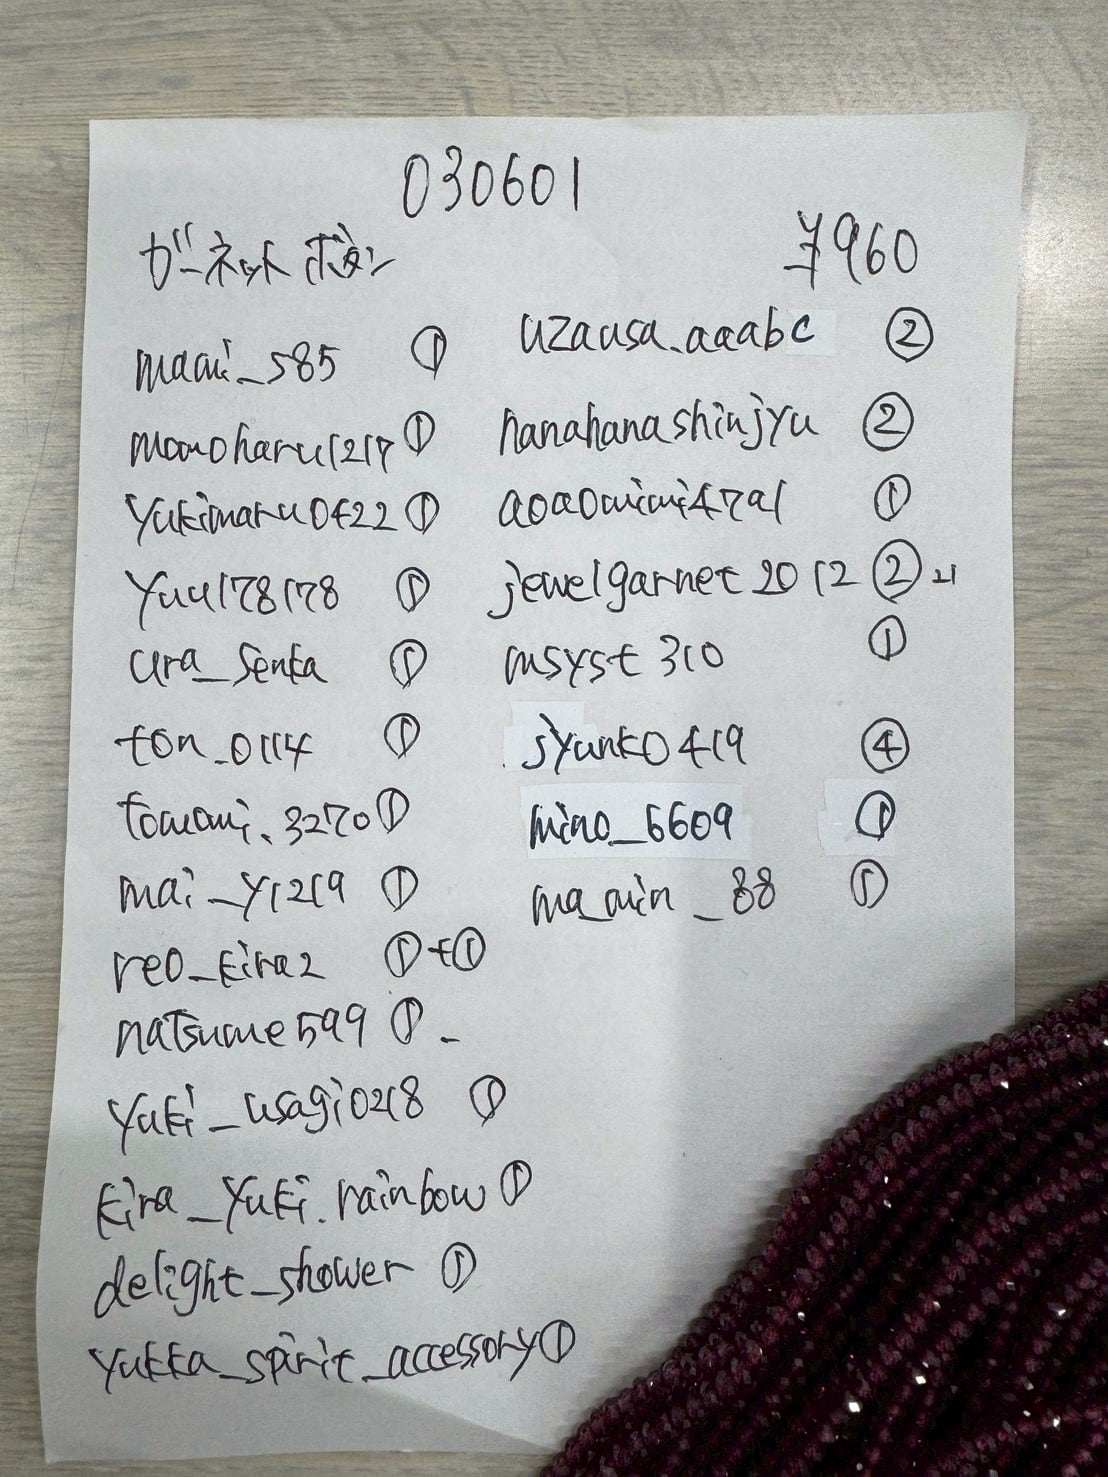 030601
ガーネットボタン
¥960
maami_585 ①
momoharu1217 ①
yukimaru0422 ①
yuu178178 ①
ura_senka ①
ton_0114 ①
tomomi.3270 ①
mai_y1219 ①
reo_kira2 ①+①
natsume599 ① -
yuki_usagi0218 ①
kira_yuki.rainbow ①
delight_shower ①
yukka_spirit_accessory ①
uzausa.aaabc ②
hanahanashinjyu ②
aoaomimi4791 ①
jewelgarnet2012 ②
msyst310 ①
jyunko0419 ④
mino_6609 ①
ma_min_88 ①